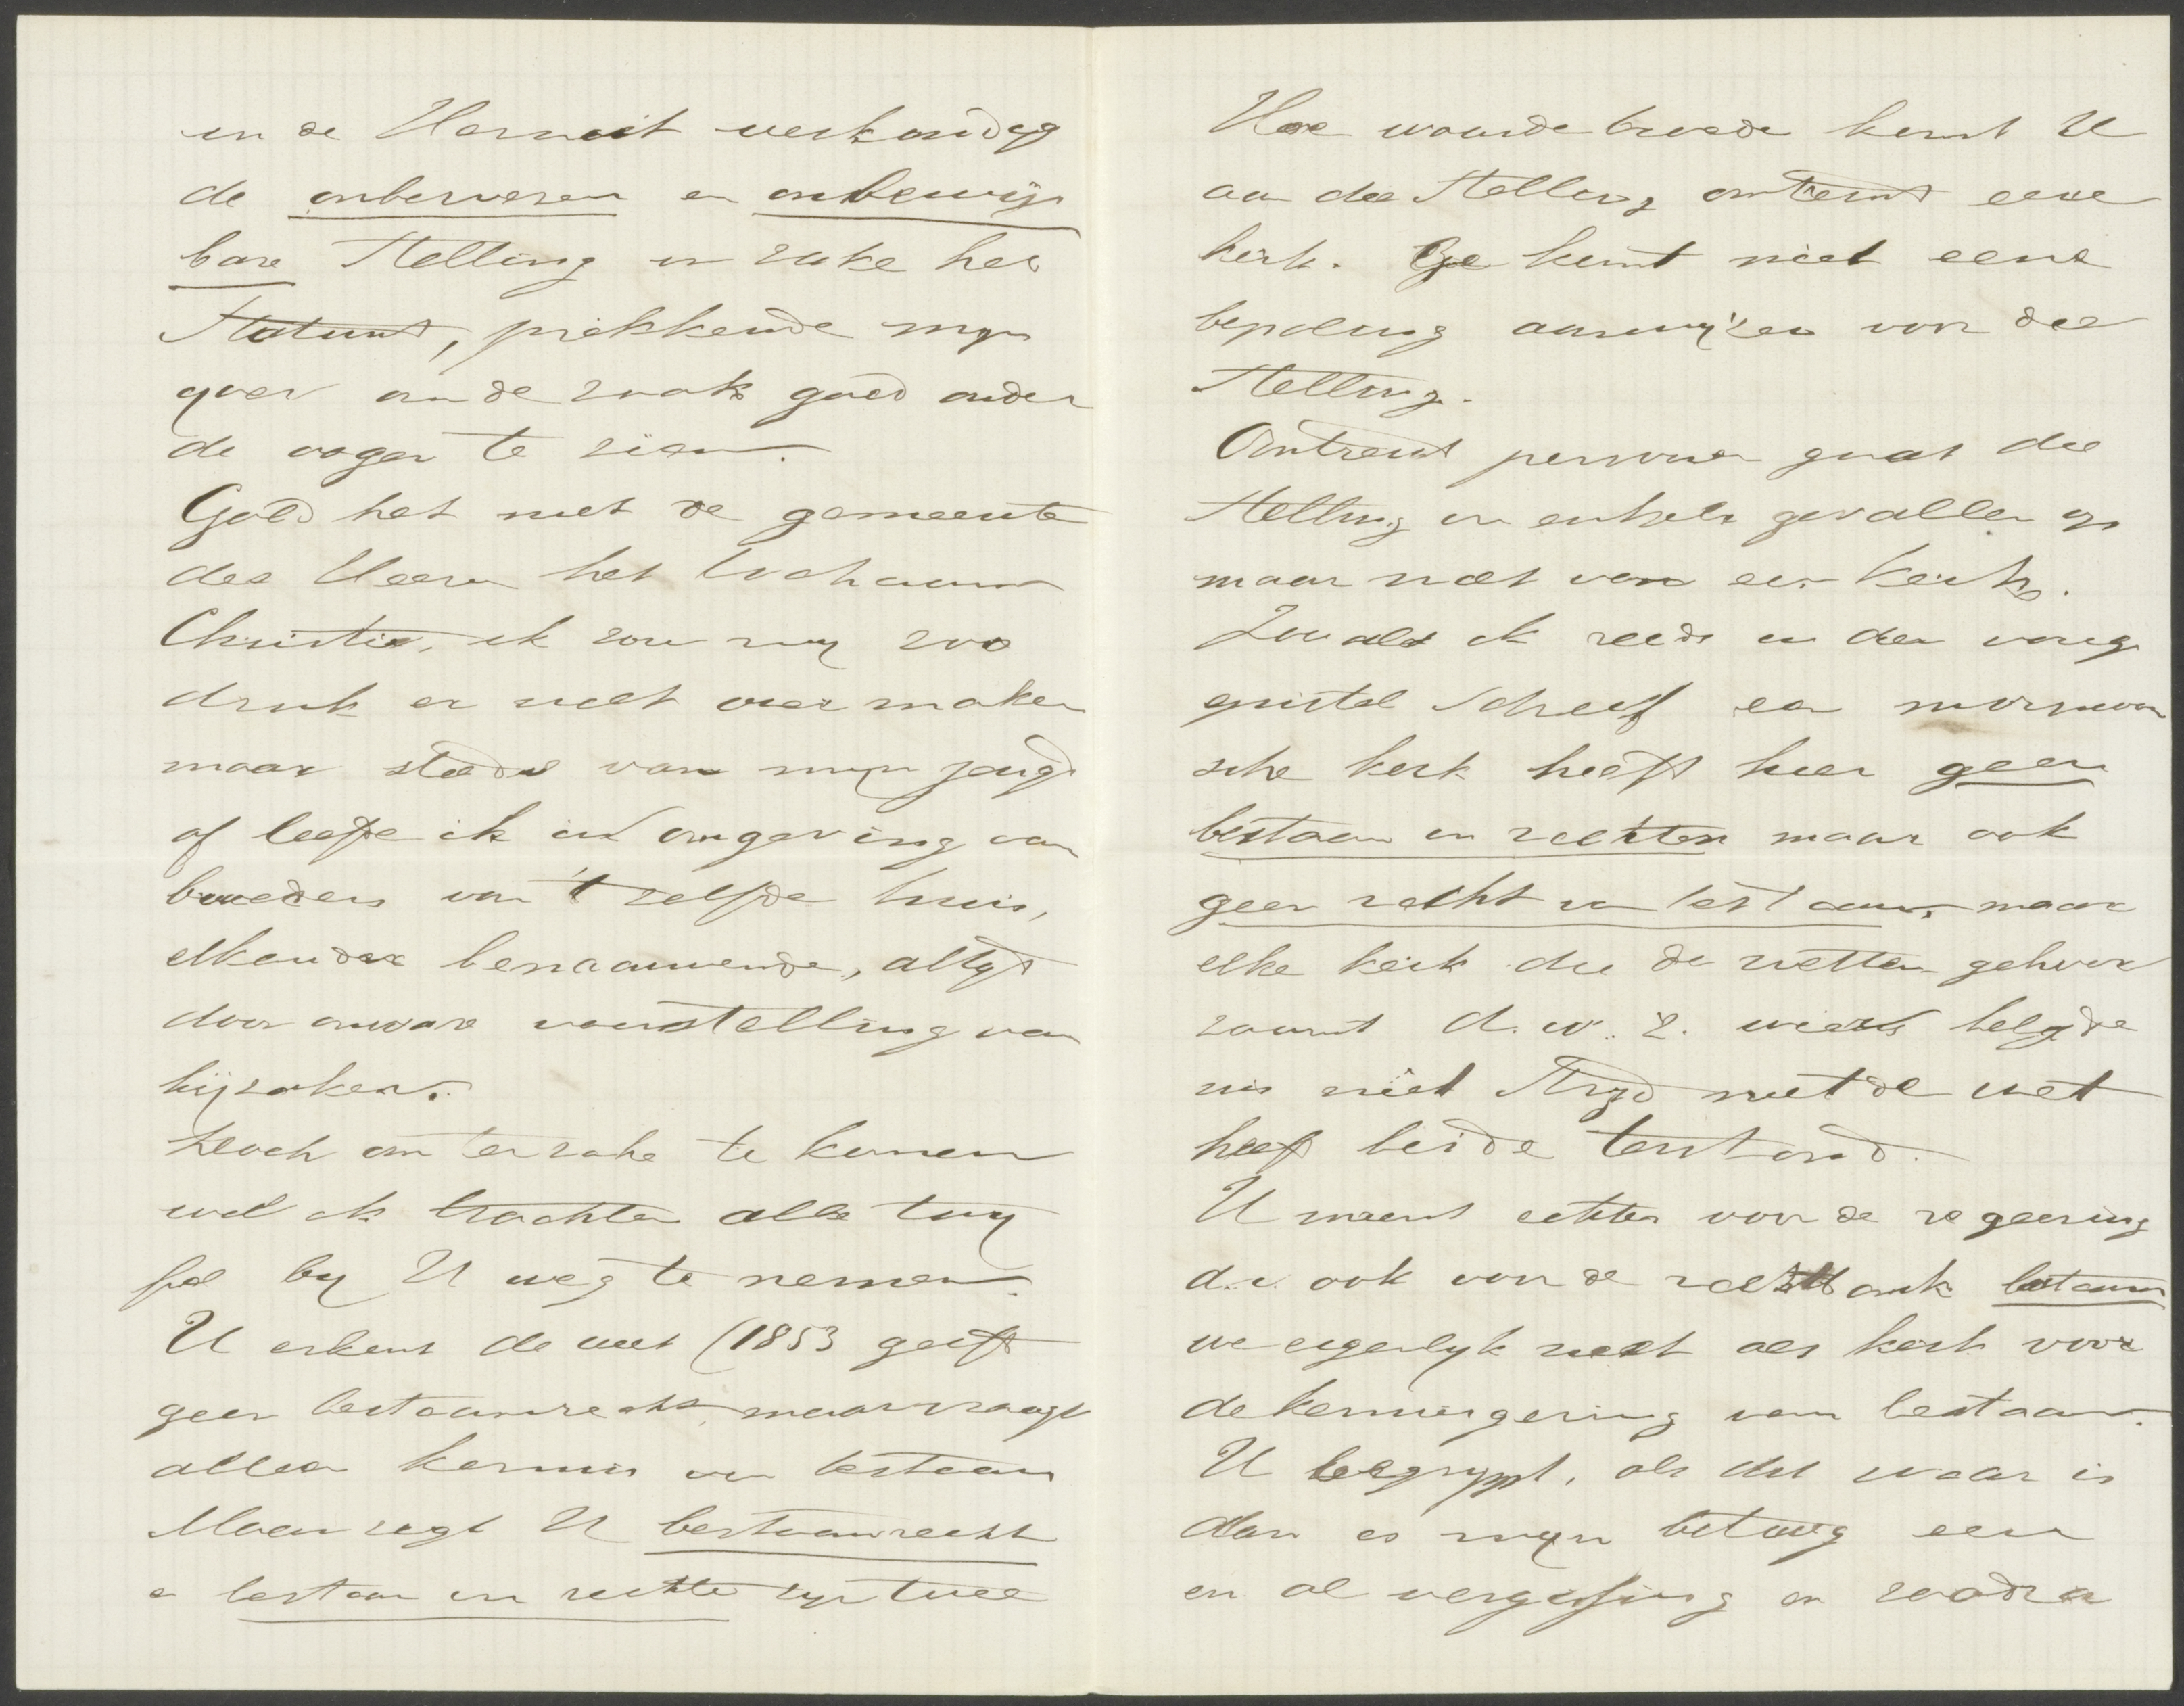 in de Heraut verkondigd
de onbewezen en onbewijs
bare Stelling in zake het
Statuut, prikkende mijn
yver om de zaak goed onder
de oogen te zien.
Gold het niet de gemeente
des Heeren het lichaam
Christi, ik zou mij zoo
druk er niet over maken
maar steeds van mijn jeugd
af leefde ik in omgeving van
broeders van 't zelfde huis,
elkander benaauwende, altyd
door onware voorstelling van
bijzaken.
Doch om ter zake te komen
wil ik trachten alle twij
fel by U weg te nemen.
U erkent de wet (1853 geeft
geen bestaansrecht maar vraagt
alleen kennis van bestaan
Maar zegt U bestaansrecht
en bestaan in rechte zijn twee
Hoe waarde broeder komt U
aan die Stelling omtrent eene
kerk. Ge kunt niet eene
bepaling aanwijzen voor die
Stelling.
Omtrent personen gaat die
Stelling in enkele gevallen op
maar niet van een kerk.
Zooals ik reeds in den vorig
epistel schreef een mormoon
sche kerk heeft hier geen
bestaan in rechten maar ook
geen recht van bestaan, maar
elke kerk die de wetten gehoor
zaamt d.w.z. wiens belyde
nis niet Stryd met de wet
heeft beide terstond.
U meent echter voor de regeering
d.i. ook voor de rechtbank bestaan
we eigenlyk niet als kerk voor
de kennisgeving van bestaan.
U begrypt, als dit waar is
dan is mijn betoog een
en al vergissing en zoodra